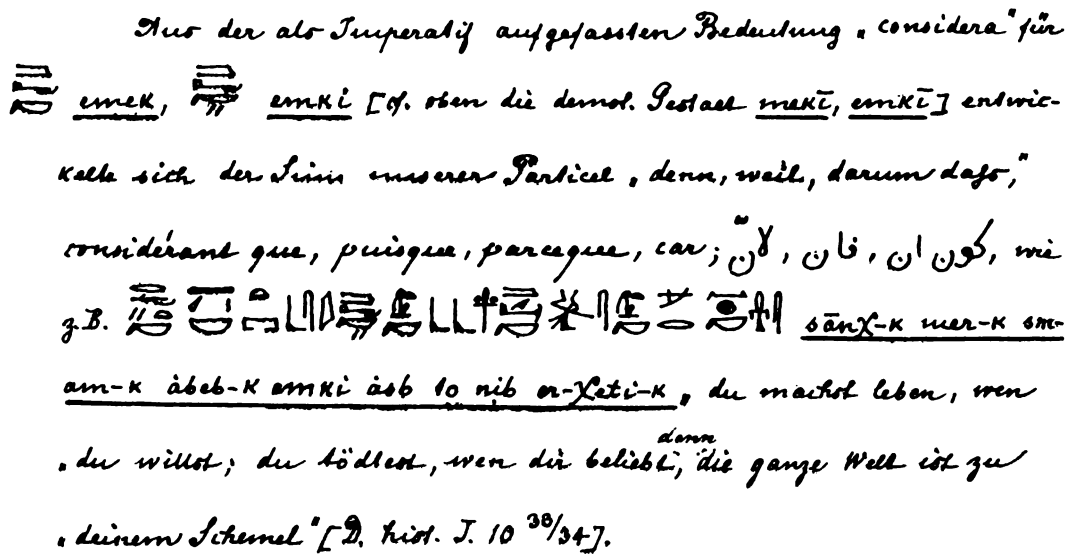 Aus der als Imperatif aufgefassten Bedeutung „considera“ für
emek, emki [cf. oben die demot. Gestalt mekī, emkī] entwic-
kelte sich der Sinn unserer Particel „denn, weil, darum daſs,“
considérant que, puisque, parceque, car; لانّ, فان, كون ان, wie
z.B. sānχ-k mer-k sm-
am-k àbeb-k emki àsb to nib er-χeti-k „du machst leben, wen
„du willst; du tödtest, wen dir beliebt, denn die ganze Welt ist zu
„deinem Schemel“ [D. hist. I. 10 38/34].